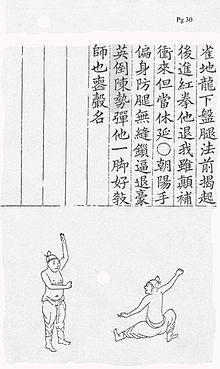 Pg 30
雀地龍下盤腿法前揭起
後進紅拳他退我雖顛補
衝來但當休延〇朝陽手
偏身防腿無縫鎖逼退豪
英倒陳勢彈他一脚好敎
師也喪聲名